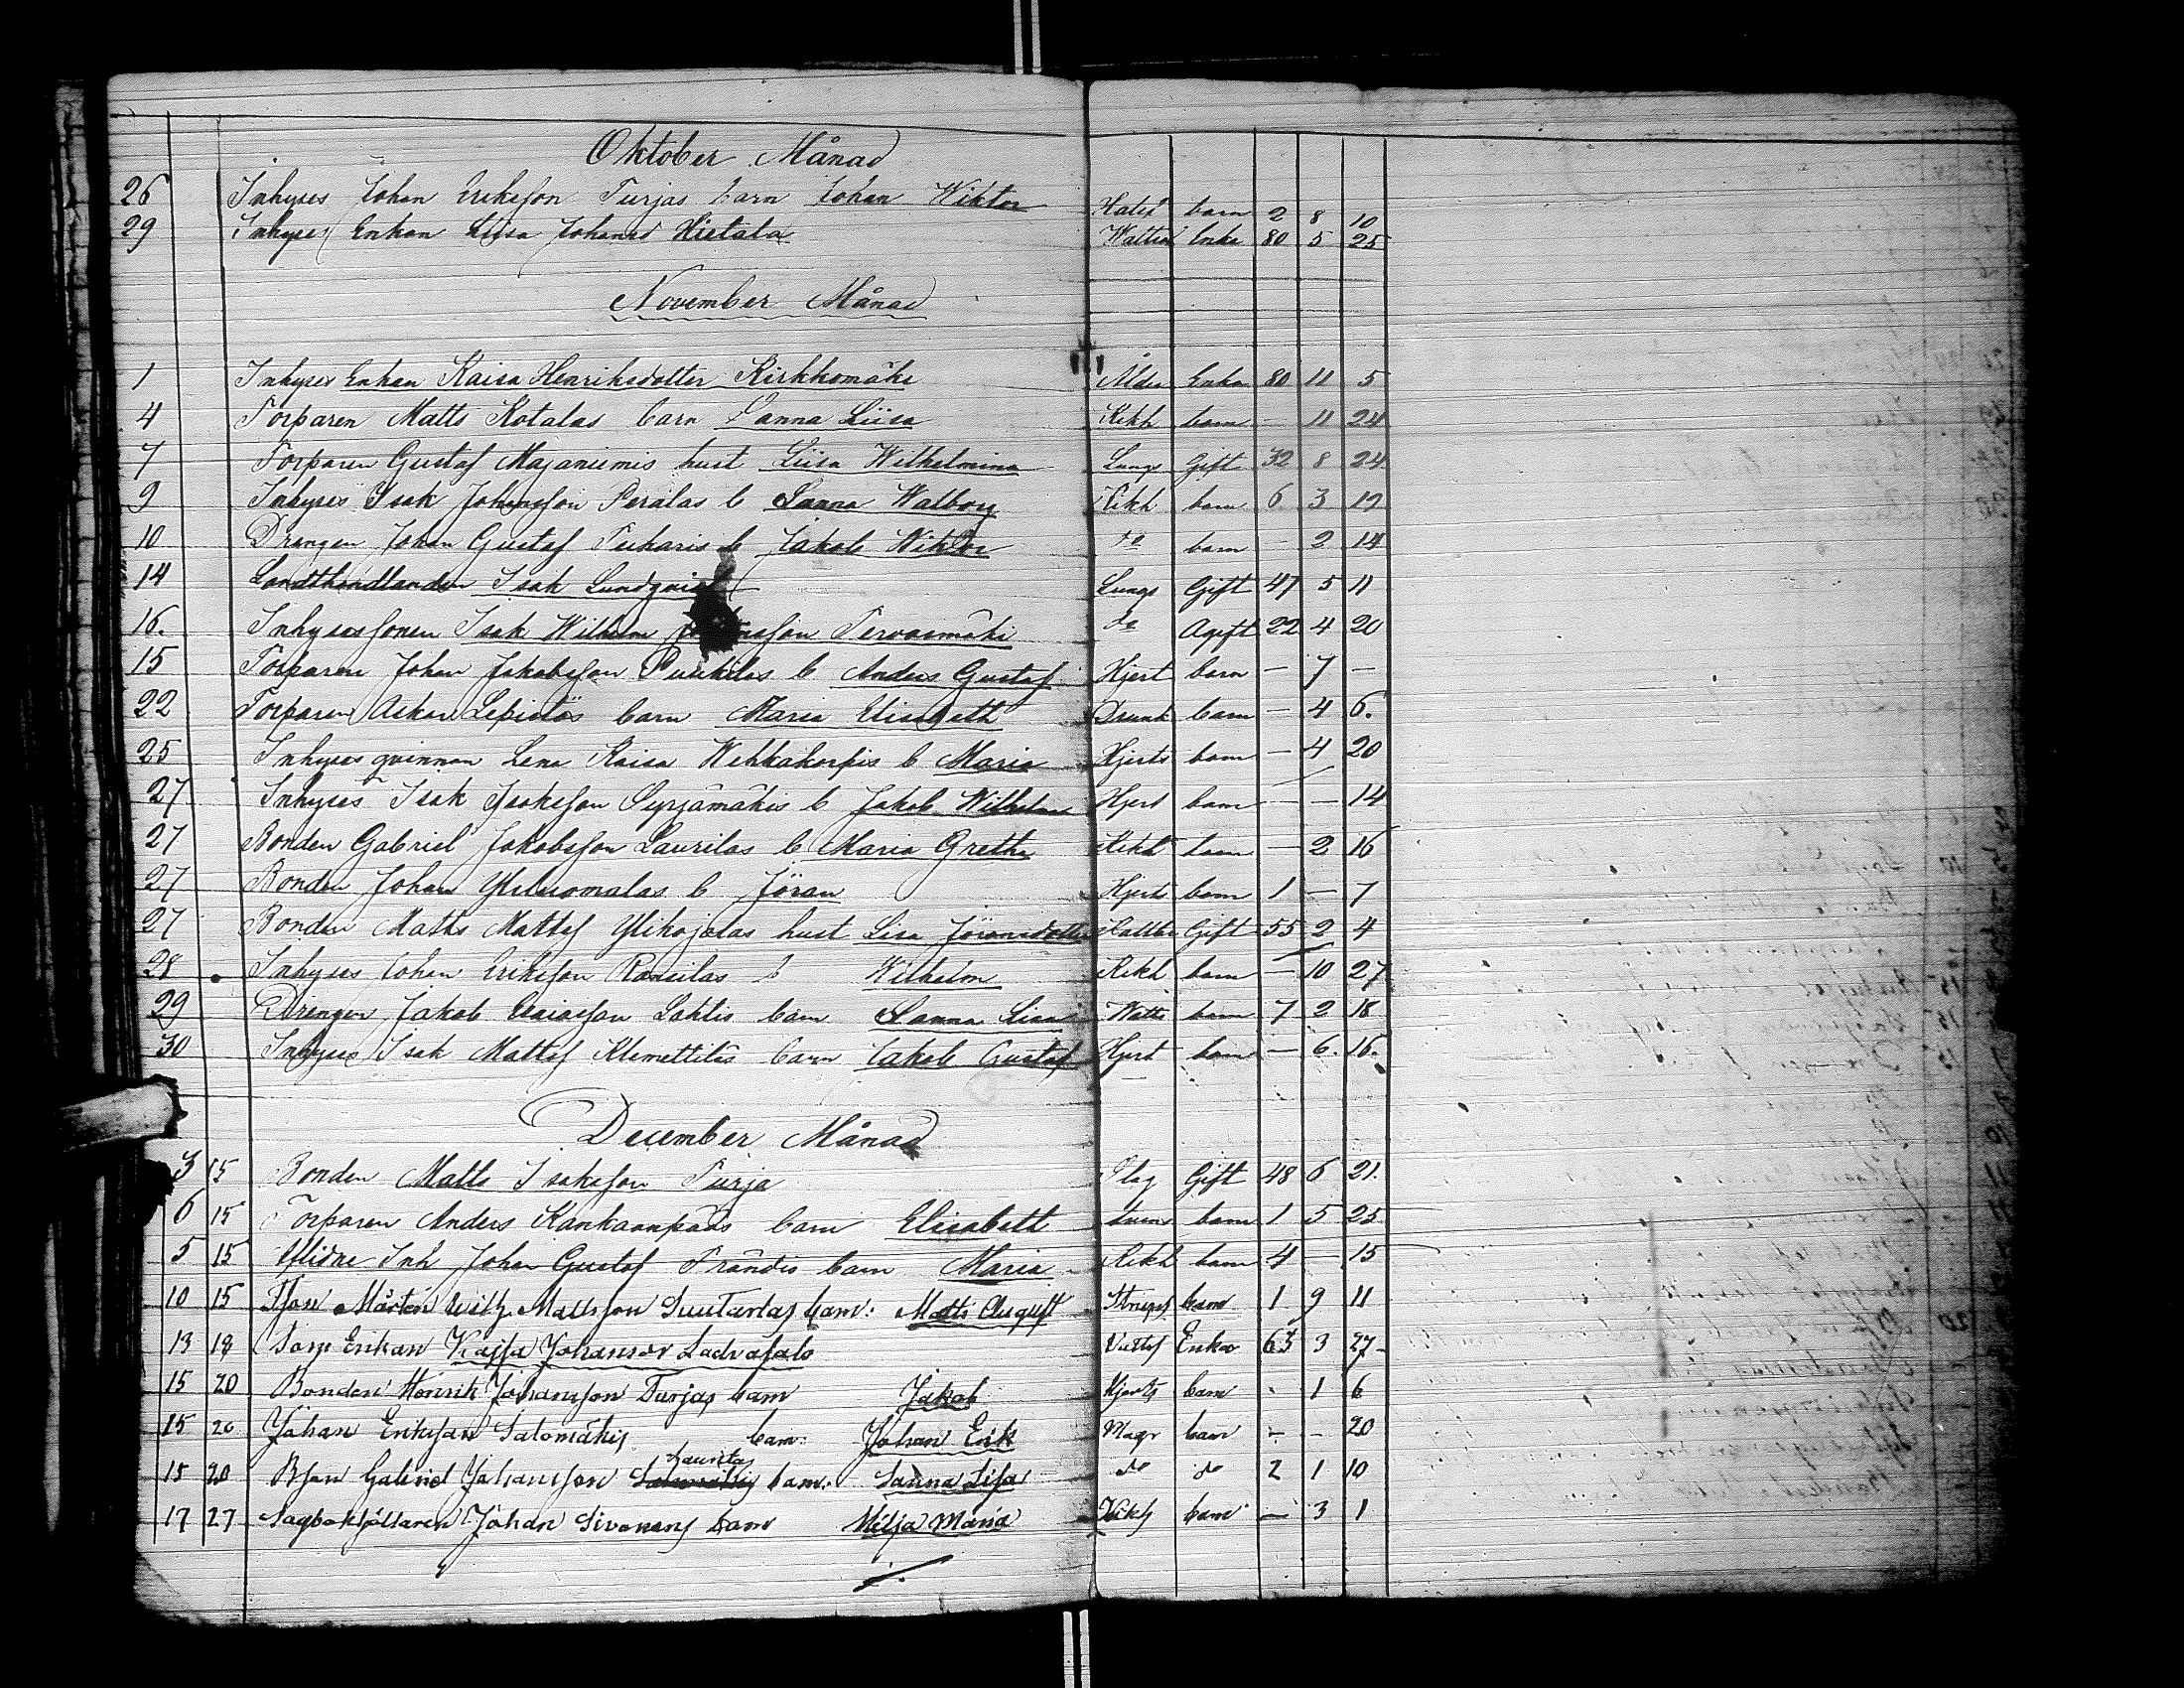 Oktober Månad
26 Inhyses Johan Eriksson Turjas barn Johan Wiktor barn 2 8 10
29 Inhyses Enkan Liisa Johansd Hietala Wattus Enka 80 5 25
November Månad
1 Inhyses Enkan Kaisa Henriksdotter Kirkkomäki Ålder Enka 80 11 5
4 Torparen Matts Kotalas barn Sanna Liisa Kikh barn — 11 24
7 Torparen Gustaf Majaniemis hust Liisa Wilhelmina Lungs Gift 32 8 24
9 Inhyses Isak Johansson Peralas b Sanna Walborg Kikh barn 6 3 19
10 Drengen Johan Gustaf b Jakob Wiktor do barn — 2 14
14 Landthandlanden Isak Lundqvist Lungs Gift 47 5 11
16. Inhysessonen Isak Wilhelm Tervasmäki do Ogift 22 4 20
15 Torparen Johan Jakobsson b Anders Gustaf Hjert barn — 7 —
22 Torparen Oskar Lepistös barn Maria Elisabeth Drunk barn — 4 6.
25 Inhyses qvinnan Lena Kaisa Wehkakorpis b Maria Hjerts barn — 4 20
27 Inhyses Isak Isaksson Syrjämäkis b Jakob Wilhelm Hjert barn — — 14
27 Bonden Gabriel Jakobsson Laurilas b Maria Gretha Kikh barn — 2 16
27 Bonden Johan b Jöran Hjerts barn 1 — 7
27 Bonden Matts Mattss Ylikojolas hust Lisa Jöransdotter Gift 55 2 4
28 Inhyses Johan Eriksson b Wilhelm Kikh barn — 10 27
29 Drengen Jakob Esaiasson Lahtis barn Sanna Liisa Watts barn 7 2 18
30 Inhyses Isak Mattss Klemettiläs barn Jakob Gustaf Hjert barn — 6. 16.
December Månad
3 15 Bonden Matts Isaksson Turja Slag Gift 48 6 21.
6 15 Torparen Anders Kankaanpääs barn Elisabeth barn 1 5 25
5 15 Aflidne Inh Johan Gustaf Prändis barn Maria Kikh barn 4 — 15
10 15 Mårten Wilh. Mattsson barn: Matts August Strups barn 1 9 11
13 18 Enkan Kajsa Johansdr Enka 63 3 27
15 20 Bonden Henrik Johansson Turjas barn Jakob Hjerts barn - 1 6
15 20 Johan Eriksson Salomäkis barn: Johan Erik Magr barn — - 20
15 20 Bson Gabriel Johansson Lauritas barn: Sanna Lisa do do 2 1 10
17 27 Johan Sivonens barn Milja Maria Kikh barn — 3 1